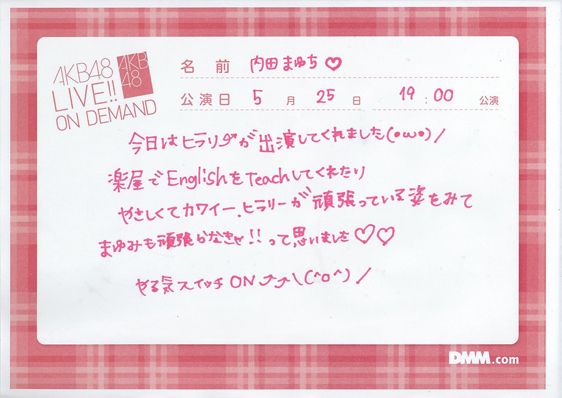 AKB48
LIVE!!
ON DEMAND
AKB
48
名 前 内田まゆち♡
公演日 5 月 25 日 19:00 公演
今日はヒラリーが出演してくれました(•ω•)/
楽屋でEnglishをTeachしてくれたり
やさしくてカワイー。ヒラリーが頑張っている姿をみて
まゆみも頑張らなきゃ!!って思いました♡♡
やる気スイッチON♪♪\(^o^)/
DMM.com